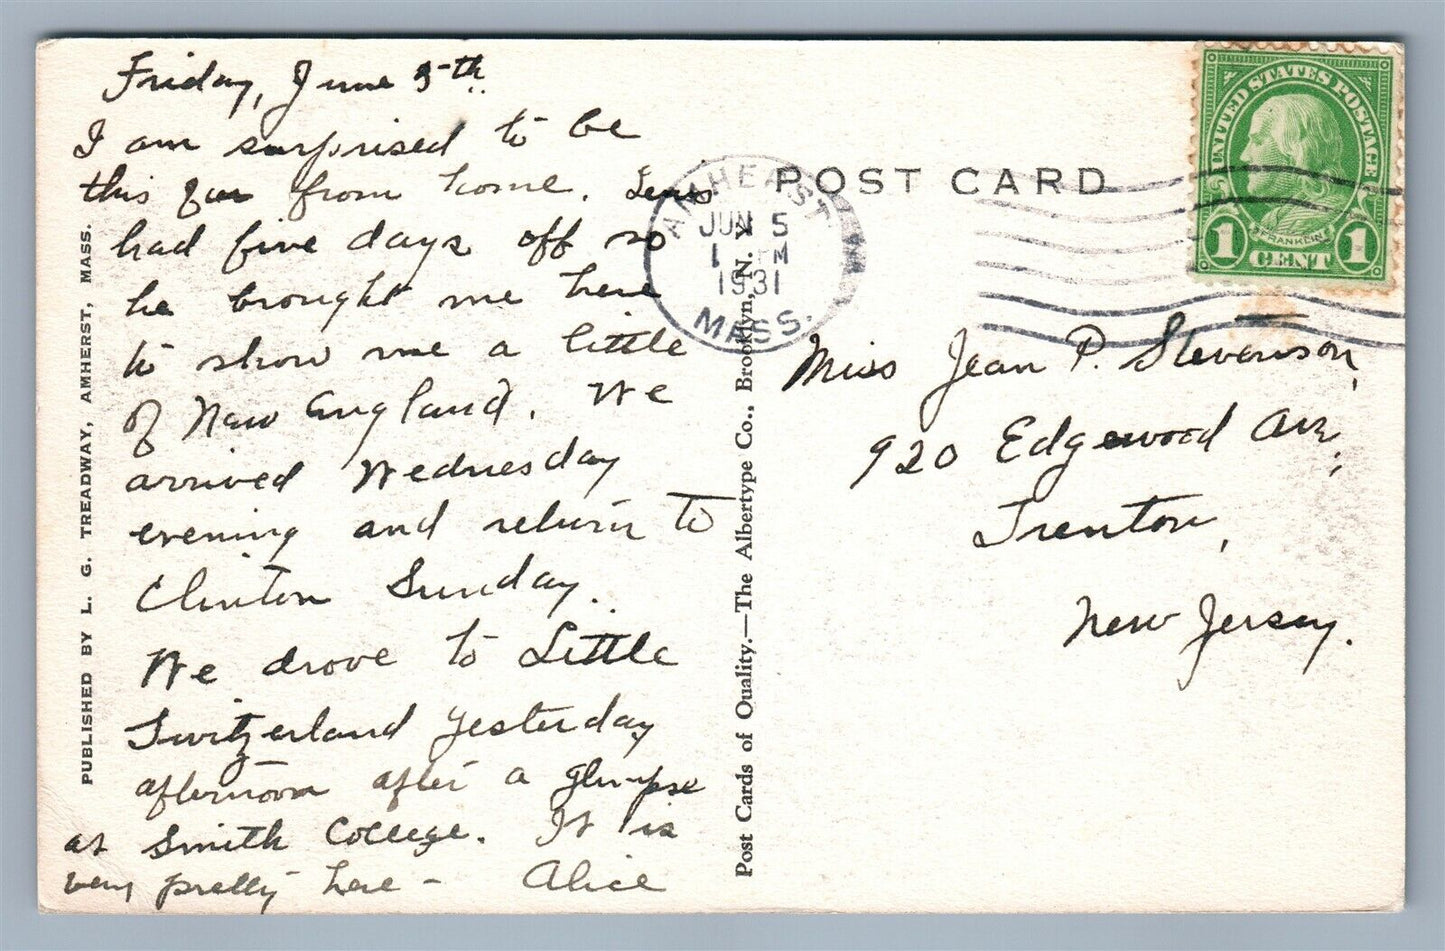 Friday, June 5th.
I am surprised to be
this far from home. Lewis
had five days off so
he brought me here
to show me a little
of New England. We
arrived Wednesday
evening and return to
Clinton Sunday.
We drove to Little
Switzerland yesterday
afternoon after a glimpse
at Smith College. It is
very pretty here - Alice
PUBLISHED BY L. G. TREADWAY, AMHERST, MASS.
Post Cards of Quality.—The Albertype Co., Brooklyn, N. Y.
POST CARD
AMHERST
JUN 5
1 PM
1931
MASS.
UNITED STATES POSTAGE
FRANKLIN
1 CENT 1
Miss Jean P. Stevenson,
920 Edgewood Ave,
Trenton,
New Jersey.